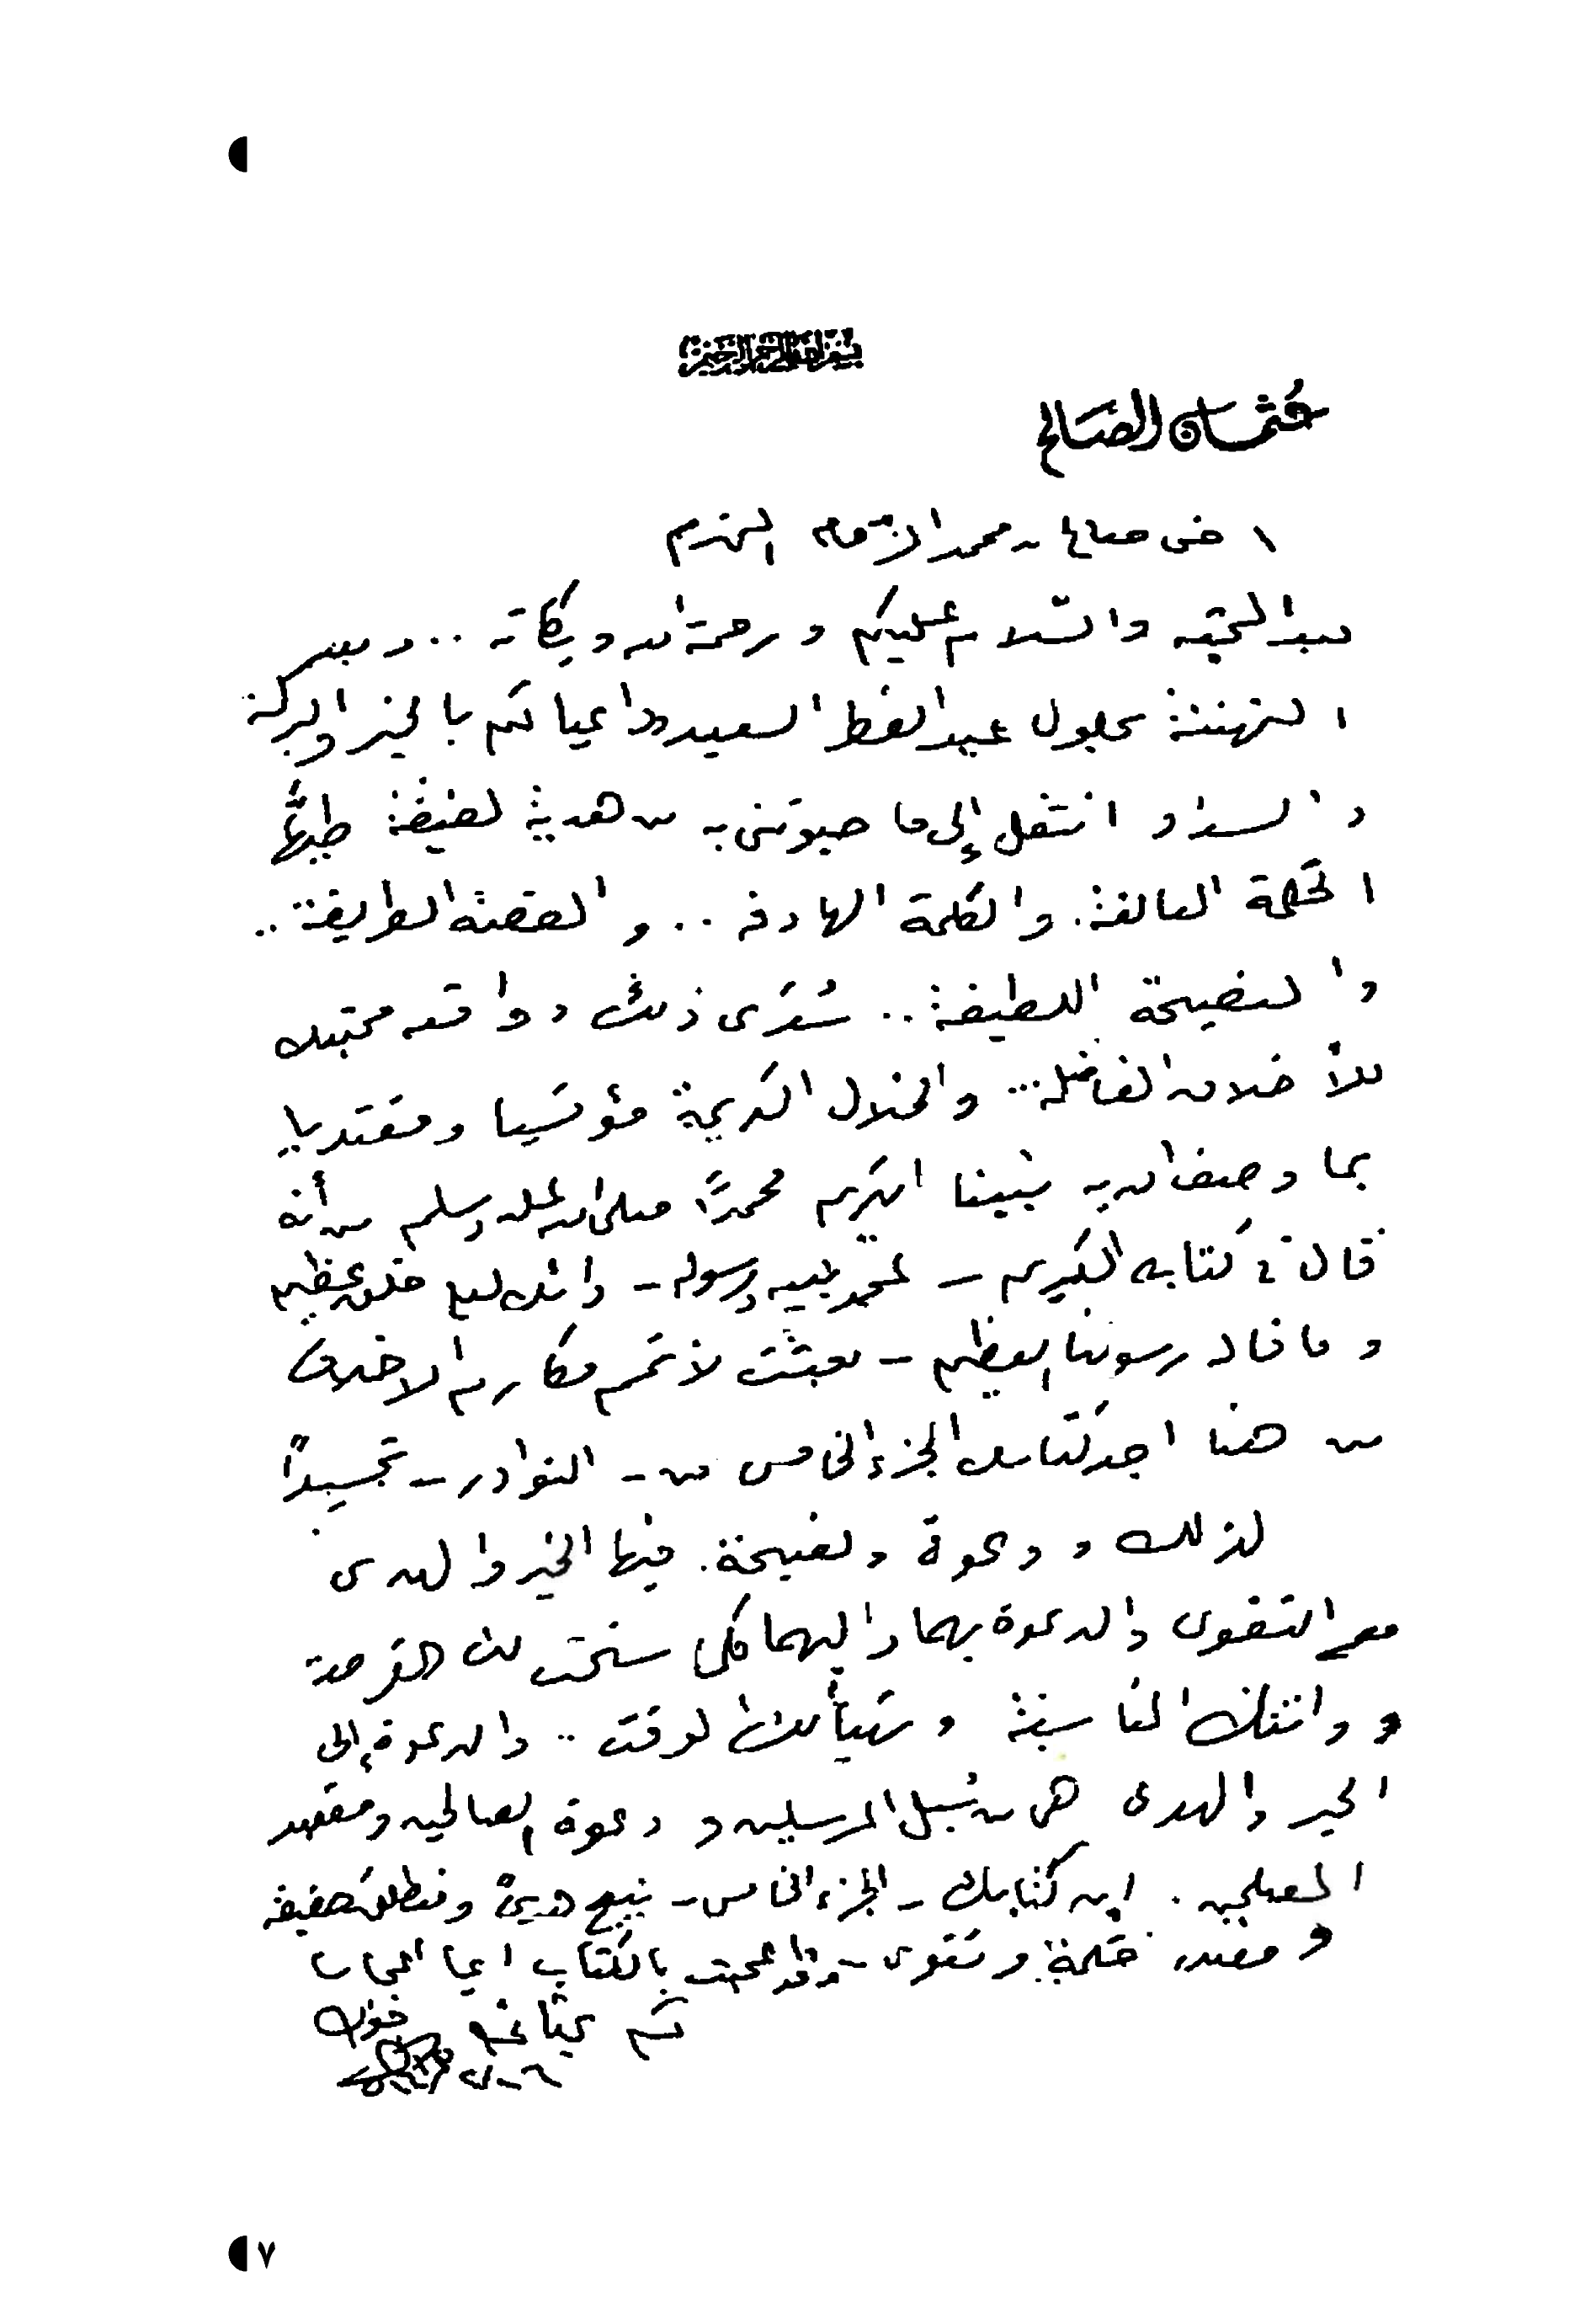 بسم الله الرحمن الرحيم
عثمان الصالح
اخي صالح محمد الزمام المحترم
بعد التحية والسلام عليكم ورحمة الله وبركاته .. وبعد
التهنئة بحلول عيد الفطر السعيد داعيا لكم بالخير والبركة
والسداد انتقل إلى ما حبوتني به من هدية لطيفة طيها
الحكمة البالغة. والكلمة الهادفة .. والقصة الطريفة ..
والنصيحة اللطيفة .. ذلك محبتك
للأخلاق الفاضلة ... والخلال الكريمة مؤتسيا ومقتديا
بما وصف الله به نبينا الكريم محمدًا صلى الله عليه وسلم من أنه
قال في كتابه الكريم - لمحمد نبيه ورسوله - وانك لعلى خلق عظيم
وما قال رسولنا العظيم - بعثت لأتمم مكارم الاخلاق
من هنا اجد كتابك الجزء الخامس من - النوادر - تجسيدًا
لذلك ودعوة ونصيحة. فيها الخير والهدى
مع التقوى والدعوة بهما واليهما كلما سنحت لك الفرصة
وواتتك المناسبة وتهيأ لك الوقت .. والدعوة إلى
الخير والهدى هي من سُبل المرسلين ودعوة الصالحين ومقصد
المصلحين. ان كتابك - الجزء الخامس - ينبع هدىً ومنطلق حقيقة
و حكمة وتقوى - وقد اعجبت بالكتاب ايما اعجاب
اخوك
٧